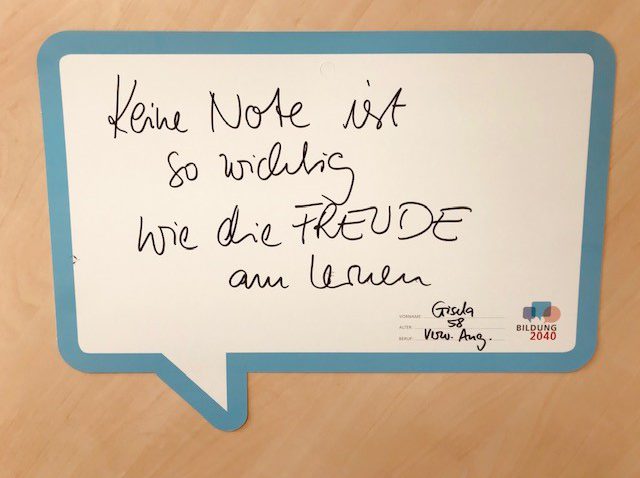 Keine Note ist
so wichtig
wie die FREUDE
am lernen
VORNAME: Gisela
ALTER: 58
BERUF: Verw. Ang.
BILDUNG
2040